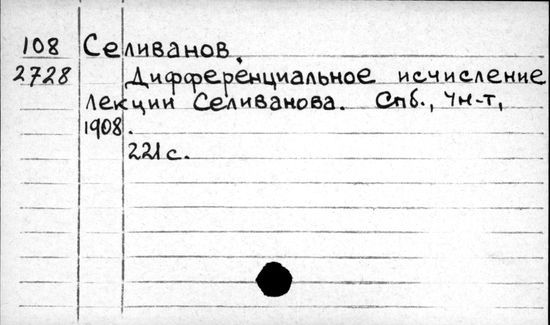 108 Селиванов.
2728 Дифференциальное исчисление
Лекции Селиванова. Спб., Ун-т,
1908.
221 с.